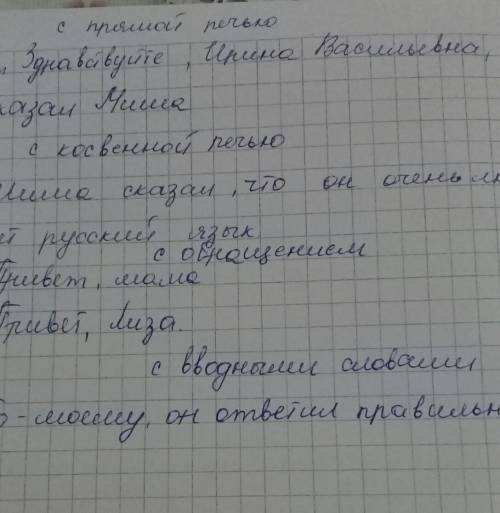 с прямой речью
Здравствуйте, Ирина Васильевна,
сказал Миша
с косвенной речью
Миша сказал, что он очень
русский язык
с обращением
Привет, мама
Привет, Лиза.
с вводными словами
-моему, он ответил правильн